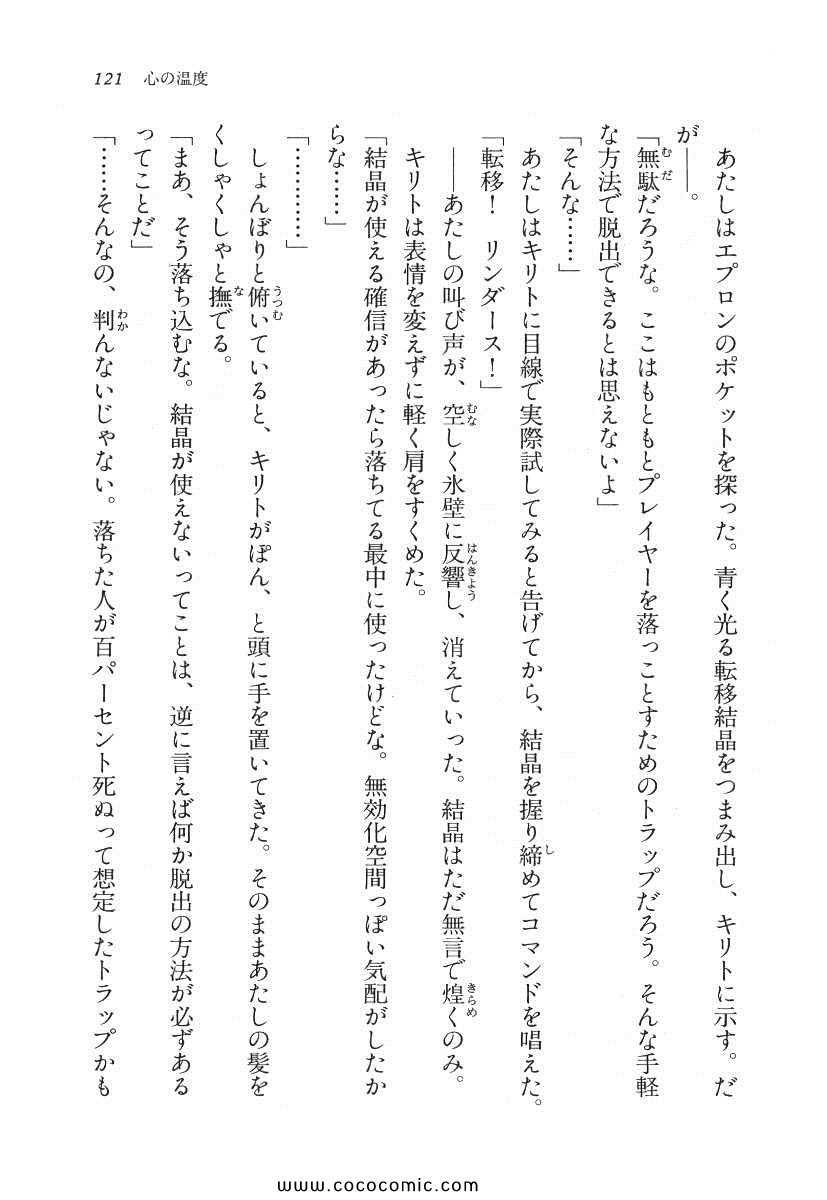 121 心の温度
　あたしはエプロンのポケットを探った。青く光る転移結晶をつまみ出し、キリトに示す。だ
が――。
「無駄だろうな。ここはもともとプレイヤーを落っことすためのトラップだろう。そんな手軽
な方法で脱出できるとは思えないよ」
「そんな……」
　あたしはキリトに目線で実際試してみると告げてから、結晶を握り締めてコマンドを唱えた。
「転移！　リンダース！」
　――あたしの叫び声が、空しく氷壁に反響し、消えていった。結晶はただ無言で煌くのみ。
　キリトは表情を変えずに軽く肩をすくめた。
「結晶が使える確信があったら落ちてる最中に使ったけどな。無効化空間っぽい気配がしたか
らな……」
「…………」
　しょんぼりと俯いていると、キリトがぽん、と頭に手を置いてきた。そのままあたしの髪を
くしゃくしゃと撫でる。
「まあ、そう落ち込むな。結晶が使えないってことは、逆に言えば何か脱出の方法が必ずある
ってことだ」
「……そんなの、判んないじゃない。落ちた人が百パーセント死ぬって想定したトラップかも
www.cococomic.com